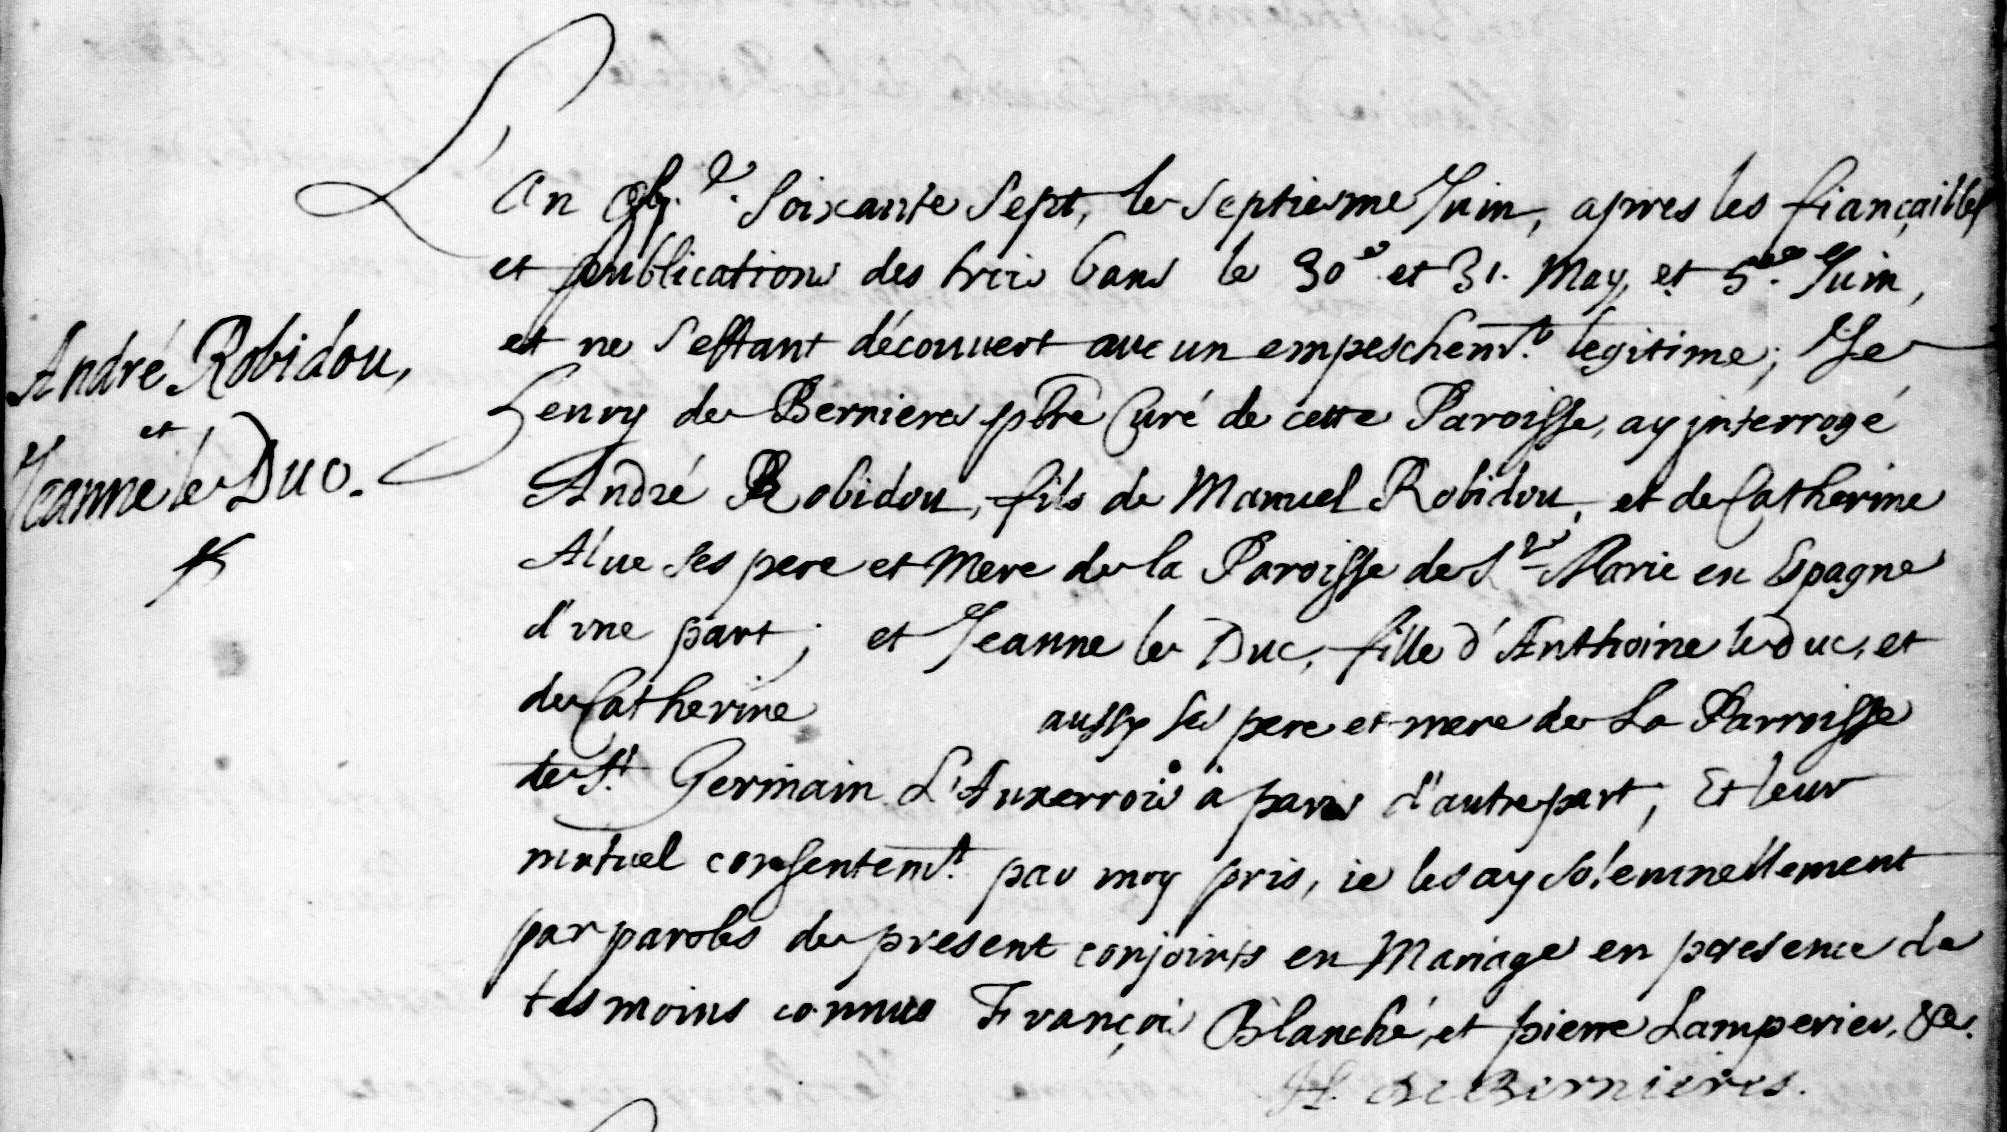 L'an soixante Sept, le septiesme Juin, apres les fiançailles
et publications des trois bans le 30e et 31. May, et 5e. Juin,
et ne s'estant découvert aucun empeschemt. legitime; Je
André Robidou,
et
Jeanne le Duc.
Henry de Bernieres pbre Curé de cette Paroisse, ay jnterrogé
André Robidou, fils de Manuel Robidou, et de Catherine
Alue ses pere et Mere de la Paroisse de Ste Marie en Espagne
d'vne part; et Jeanne le Duc, fille d'Anthoine le Duc, et
de Catherine aussy ses pere et mere de La Parroisse
de St. Germain L'Auxerrois à paris d'autre part; Et leur
mutuel consentemt. par moy pris, ie les ay solemnellement
par paroles de present conjoints en Mariage en presence de
tesmoins connus François Blanché, et pierre Lamperier, &c.
H. de Bernieres.